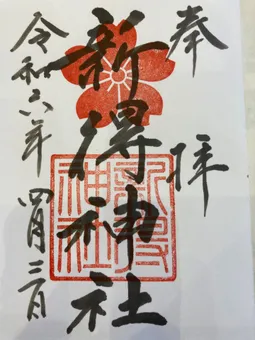 奉拝
新得神社
新得神社
令和六年四月三日